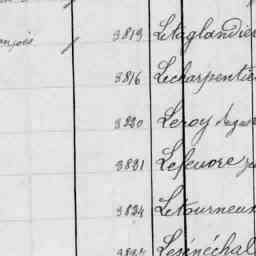 3813 Letaglandier
3816 Lecharpentie
3820 Leroy
3821 Lefeuvre
3824 Letourneux
Lesénéchal